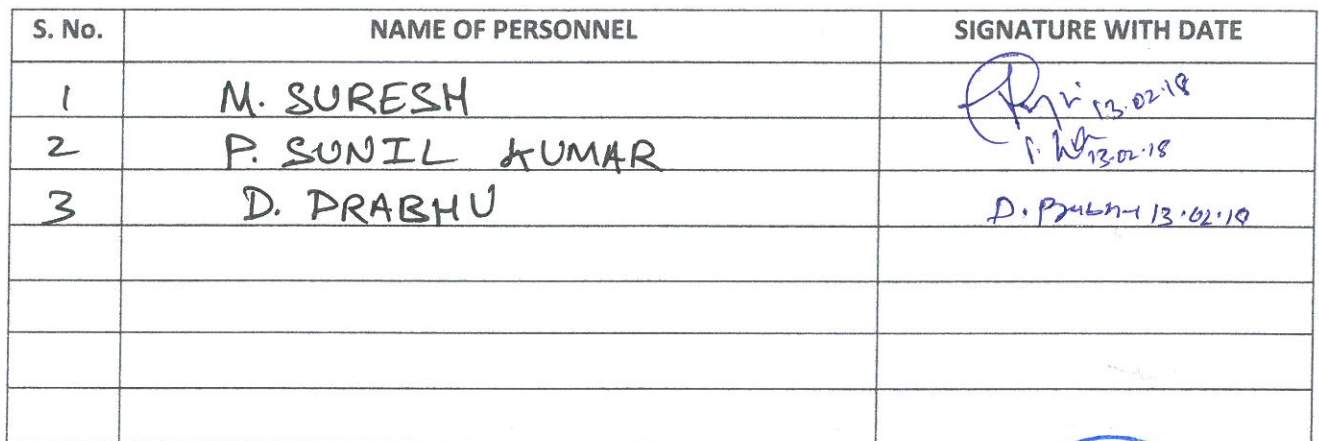 S. No. NAME OF PERSONNEL SIGNATURE WITH DATE
1 M. SURESH 13.02.18
2 P. SUNIL KUMAR 13.02.18
3 D. PRABHU D. Prabhu 13.02.18